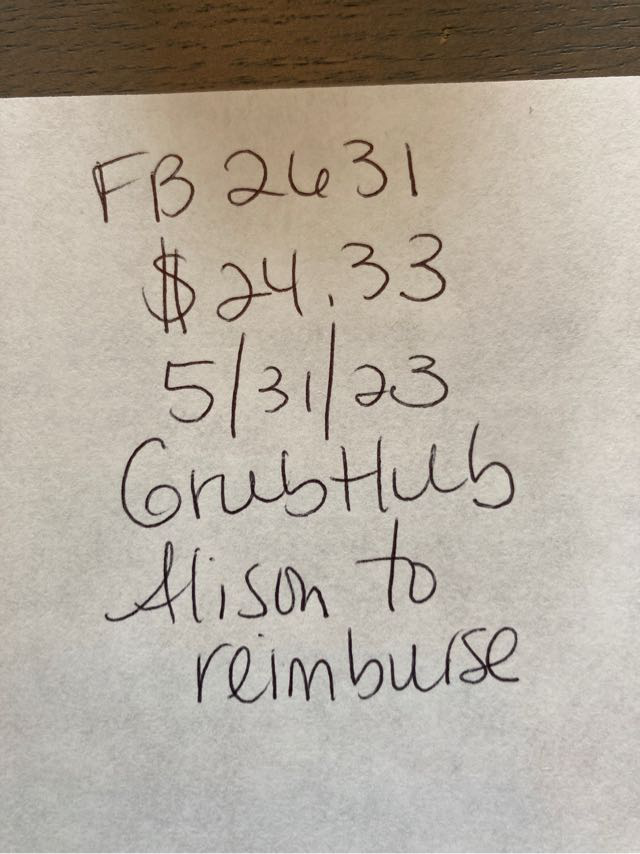 FB 2631
$24.33
5/31/23
GrubHub
Alison to
reimburse